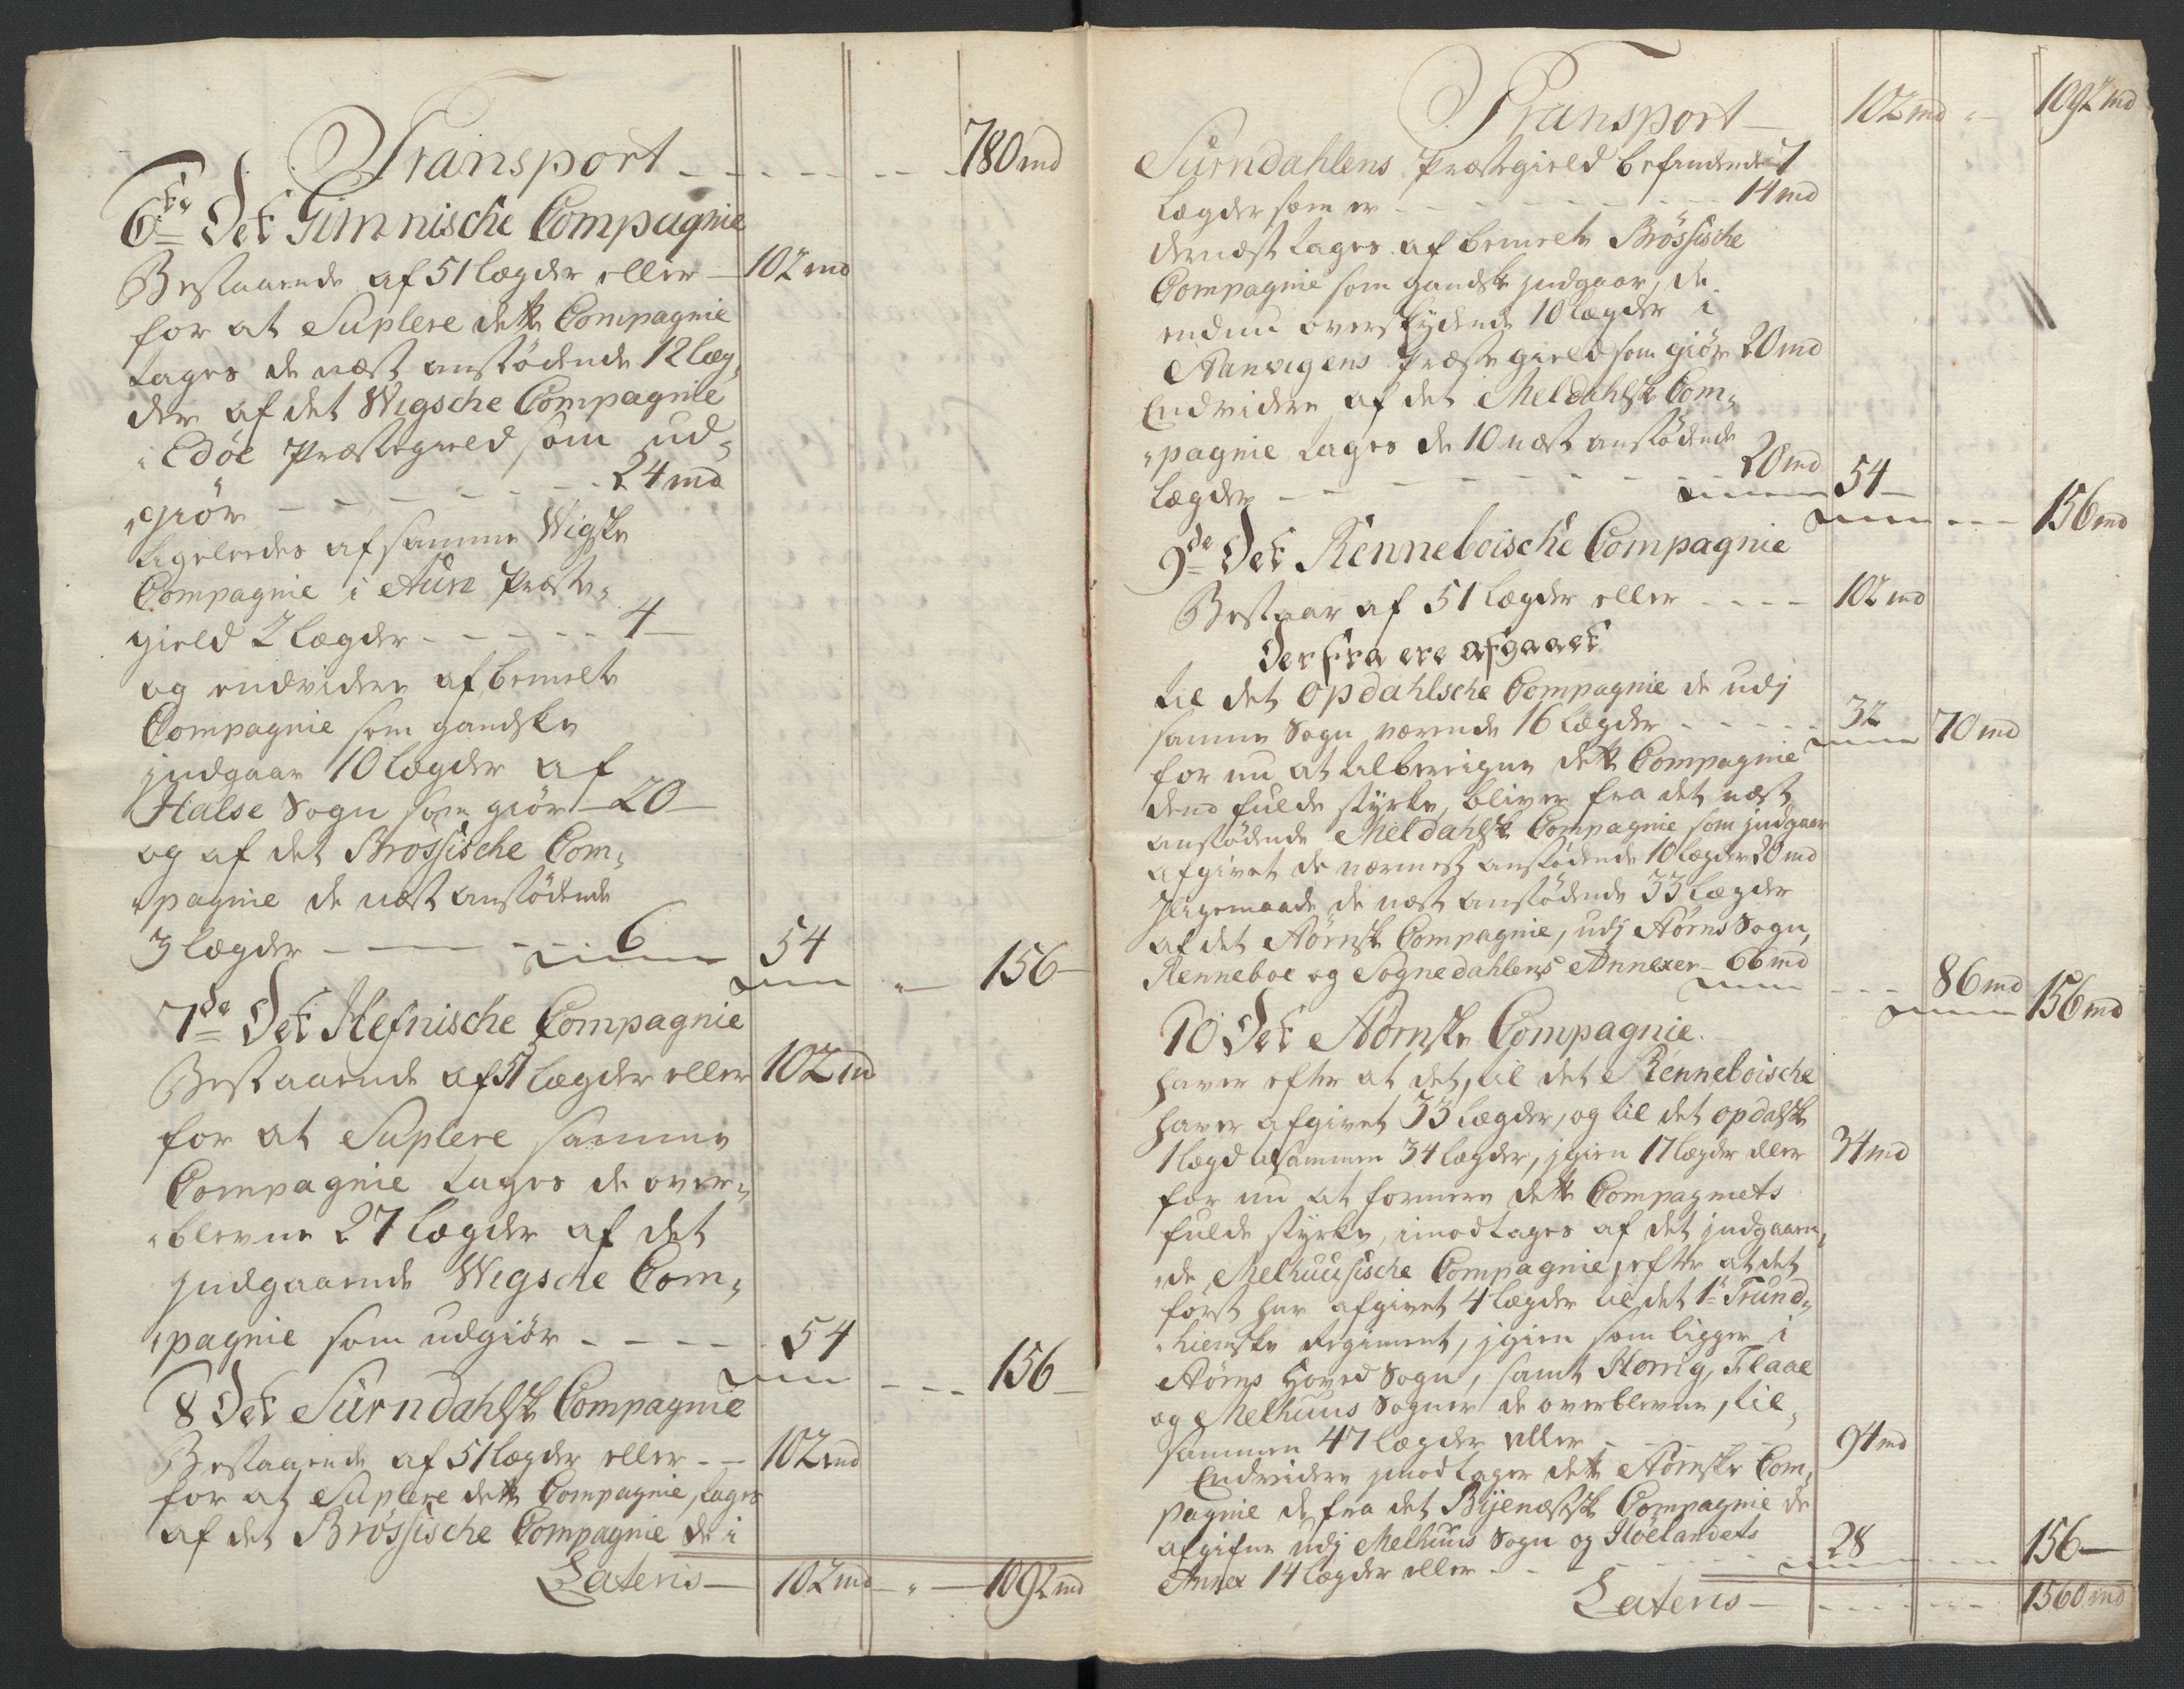 Transport - - - - - - - 780 md
6te Det Gimnische Compagnie
Bestaaende af 51 lægder eller — 102 md
for at Suplere dette Compagnie
tages de næst anstödende 12 læg,
der af det Wigsche Compagnie
i Edöe Præstegield som ud,
„giör - - - - - - 24 md
ligeleedes af samme Wigske
Compagnie i Aure Præste,
gield 2 lægder - - - - - 4 —
og endvidere af bemelte
Compagnie som gandske
jndgaar 10 lægder af
Halse Sogn som giör — 20 —
og af det Brössische Com,
„pagnie de næst anstödende
3 lægder - — - - 6 54 „ — 156 —
7de Det Hefnische Compagnie
Bestaaende af 51 lægder eller 102 md
for at Suplere samme
Compagnie tages de over,
„blevne 27 lægder af det
jndgaaende Wigsche Com,
„pagnie som udgiör - - - - 54 - - - 156 —
8 Det Surndahlske Compagnie
Bestaaende af 51 lægder eller - - 102 md
for at Suplere dette Compagnie, tages
af det Brössische Compagnie de i
Lateris — 102 md — „ — 1092 md
Transport — 102 md „ — 1092 md
Surndahlens Præstegield befindende 7
lægder som er - - - - - - - - 14 md
dernæst tages af bemelte Brössische
Compagnie som gandske jndgaar, de
endnu overskydende 10 lægder i
Stanvigens Præstegield som giör 20 md
Endvidere af det Meldahlske Com,
„pagnie tages de 10 næst anstödende
lægder - - - - - - - - 20 md 54 — - - - 156 md
9de Det Renneboische Compagnie
Bestaar af 51 lægder eller - - - - 102 md
Derfra ere afgaaet
til det Opdahlsche Compagnie de udj
samme Sogn værende 16 lægder - - - - - 32 70 md
for nu at tilbereigne dette Compagnie
dend fulde styrke, bliver fra det næst
anstödende Meldahlske Compagnie som jndgaar
afgivet de nærmest anstödende 10 lægder 20 md
Jligemaade de næst anstödende 33 lægder
af det Störnske Compagnie, udj Störns Sogn,
Renneboe og Sognedahlens Annexer - 66 md - - - 86 md 156 md
10 Det Störnske Compagnie.
haver efter at det, til det Renneboische
haver afgivet 33 lægder, og til det opdalske
1 lægd alsammen 34 lægder, jgien 17 lægder eller 34 md
for nu at formere dette Compagniets
fulde styrke, imodtages af det jndgaaen,
„de Melhuusische Compagnie, efter at det
först har afgivet 4 lægder til det 1te Trund,
„hiemske Regiment, jgien som ligger i
Störns Hoved Sogn, samt Horrig, Flaae
og Melhuus Sogner de overblevne, til,
sammen 47 lægder eller - - - - 94 md
Endvidere jmodtager dette Störnske Com,
pagnie de fra det Byenæsske Compagnie de
afgifne udj Melhuus Sogn og Höelandets
Annex 14 lægder eller - - - - - - 28 - - - 156 —
Lateris — - - - - - - 1560 md